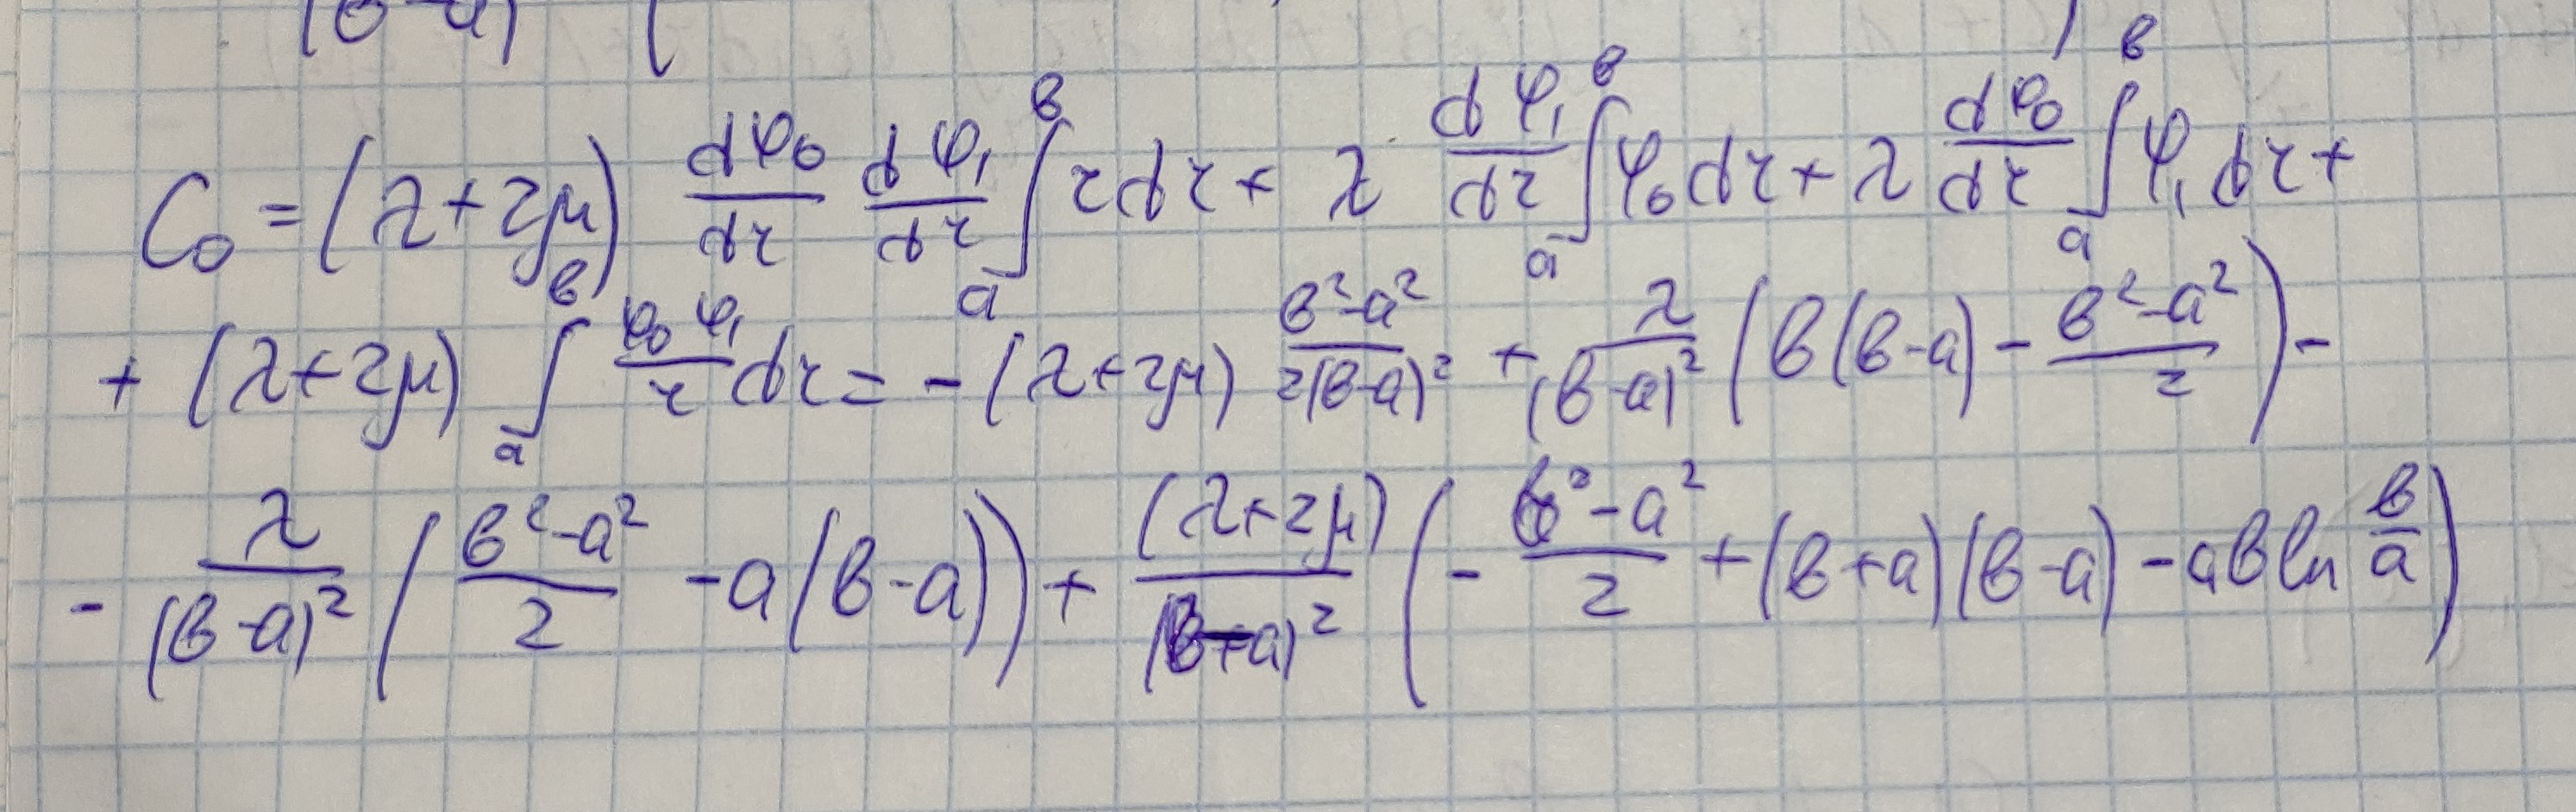 (в-a) (
C₀ = (λ+2μ) dφ₀/dr dφ₁/dr ∫ₐᵇ r dr + λ dφ₁/dr ∫ₐᵇ φ₀ dr + λ dφ₀/dr ∫ₐᵇ φ₁ dr +
+ (λ+2μ) ∫ₐᵇ φ₀φ₁/r dr = - (λ+2μ) (в²-a²)/(2(в-a)²) + λ/(в-a)² (в(в-a) - (в²-a²)/2) -
- λ/(в-a)² ((в²-a²)/2 - a(в-a)) + (λ+2μ)/(в-a)² (- (в²-a²)/2 + (в+a)(в-a) - aв ln в/a)